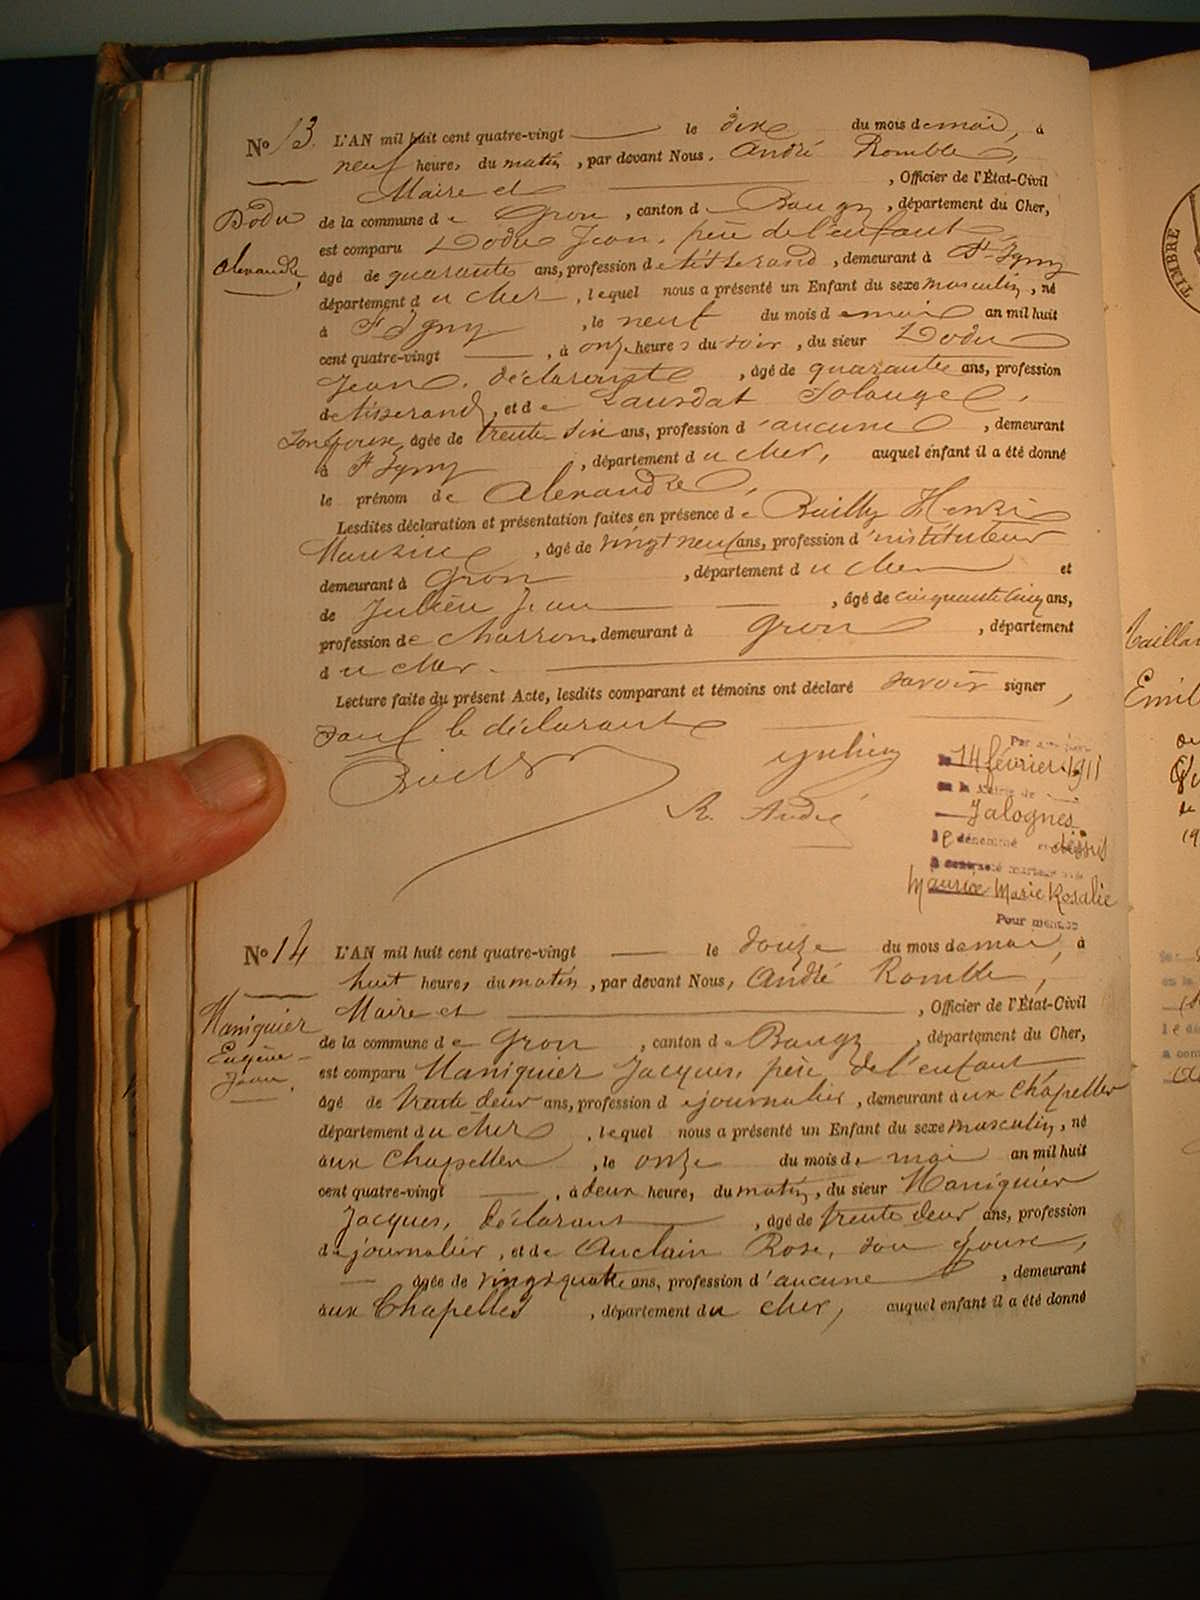 No 13. L'AN mil huit cent quatre-vingt le dix du mois de mai, à
neuf heures du matin, par devant Nous, André Romble,
Maire et , Officier de l'État-Civil
Dodu
de la commune de Gron, canton de Baugy, département du Cher,
est comparu Dodu Jean, père de l'enfant
Alexandre,
âgé de quarante ans, profession de tisserand, demeurant à St Igny
département du Cher, lequel nous a présenté un Enfant du sexe masculin, né
à St Igny, le neuf du mois de mai an mil huit
cent quatre-vingt , à onze heures du soir, du sieur Dodu
Jean, déclarant, âgé de quarante ans, profession
de tisserand, et de Laurdat Solange,
Son épouse, âgée de trente six ans, profession d'aucune, demeurant
à St Igny, département du Cher, auquel enfant il a été donné
le prénom de Alexandre,
Lesdites déclaration et présentation faites en présence de Bailly Henri
Maurice, âgé de vingt neuf ans, profession d'instituteur
demeurant à Gron, département du Cher et
de Julien Jean, âgé de cinquante cinq ans,
profession de charron, demeurant à Gron, département
du Cher.
Lecture faite du présent Acte, lesdits comparant et témoins ont déclaré savoir signer,
sauf le déclarant
Julien
R. André
Par
le 14 février 1911
en la Mairie de
Jalognes
le dénommé ci-dessus
a contracté mariage avec
Maurice Marie Rosalie
Pour mention
No 14 L'AN mil huit cent quatre-vingt le douze du mois de mai, à
huit heures du matin, par devant Nous, André Romble,
Maire et , Officier de l'État-Civil
Maniguier
Eugène
Jean.
de la commune de Gron, canton de Baugy, département du Cher,
est comparu Maniguier Jacques, père de l'enfant
âgé de trente deux ans, profession de journalier, demeurant aux Chapelles
département du Cher, lequel nous a présenté un Enfant du sexe masculin, né
aux Chapelles, le onze du mois de mai an mil huit
cent quatre-vingt , à deux heures du matin, du sieur Maniguier
Jacques, déclarant, âgé de trente deux ans, profession
de journalier, et de Auclain Rose, son épouse,
âgée de vingt quatre ans, profession d'aucune, demeurant
aux Chapelles, département du Cher, auquel enfant il a été donné
TIMBRE